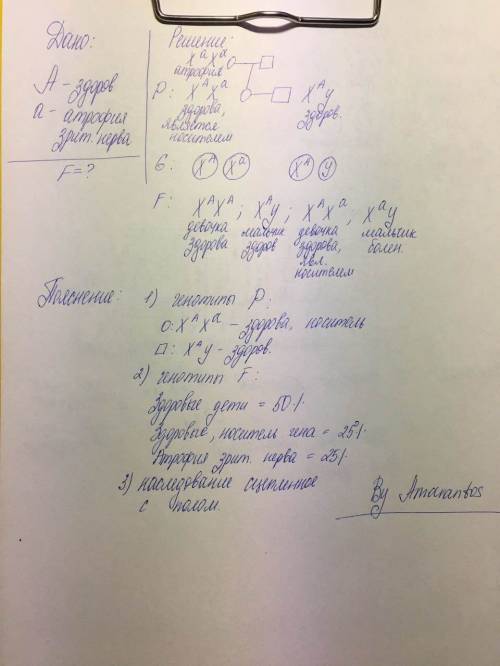 Дано:
A - здоров
a - атрофия
зрит. нерва
F = ?
Решение:
XᵃXᵃ
атрофия
P: XᴬXᵃ XᴬY
здорова, здоров.
является
носителем
G: Xᴬ Xᵃ Xᴬ Y
F: XᴬXᴬ ; XᴬY ; XᴬXᵃ ; XᵃY
девочка мальчик девочка мальчик
здорова здоров здорова, болен.
явл.
носителем
Пояснение: 1) генотипы P:
○: XᴬXᵃ - здорова, носитель
□: XᴬY - здоров.
2) генотипы F:
Здоровые дети = 50%
Здоровые, носитель гена = 25%
Атрофия зрит. нерва = 25%
3) наследование сцепленное
с полом.
By Amarantos